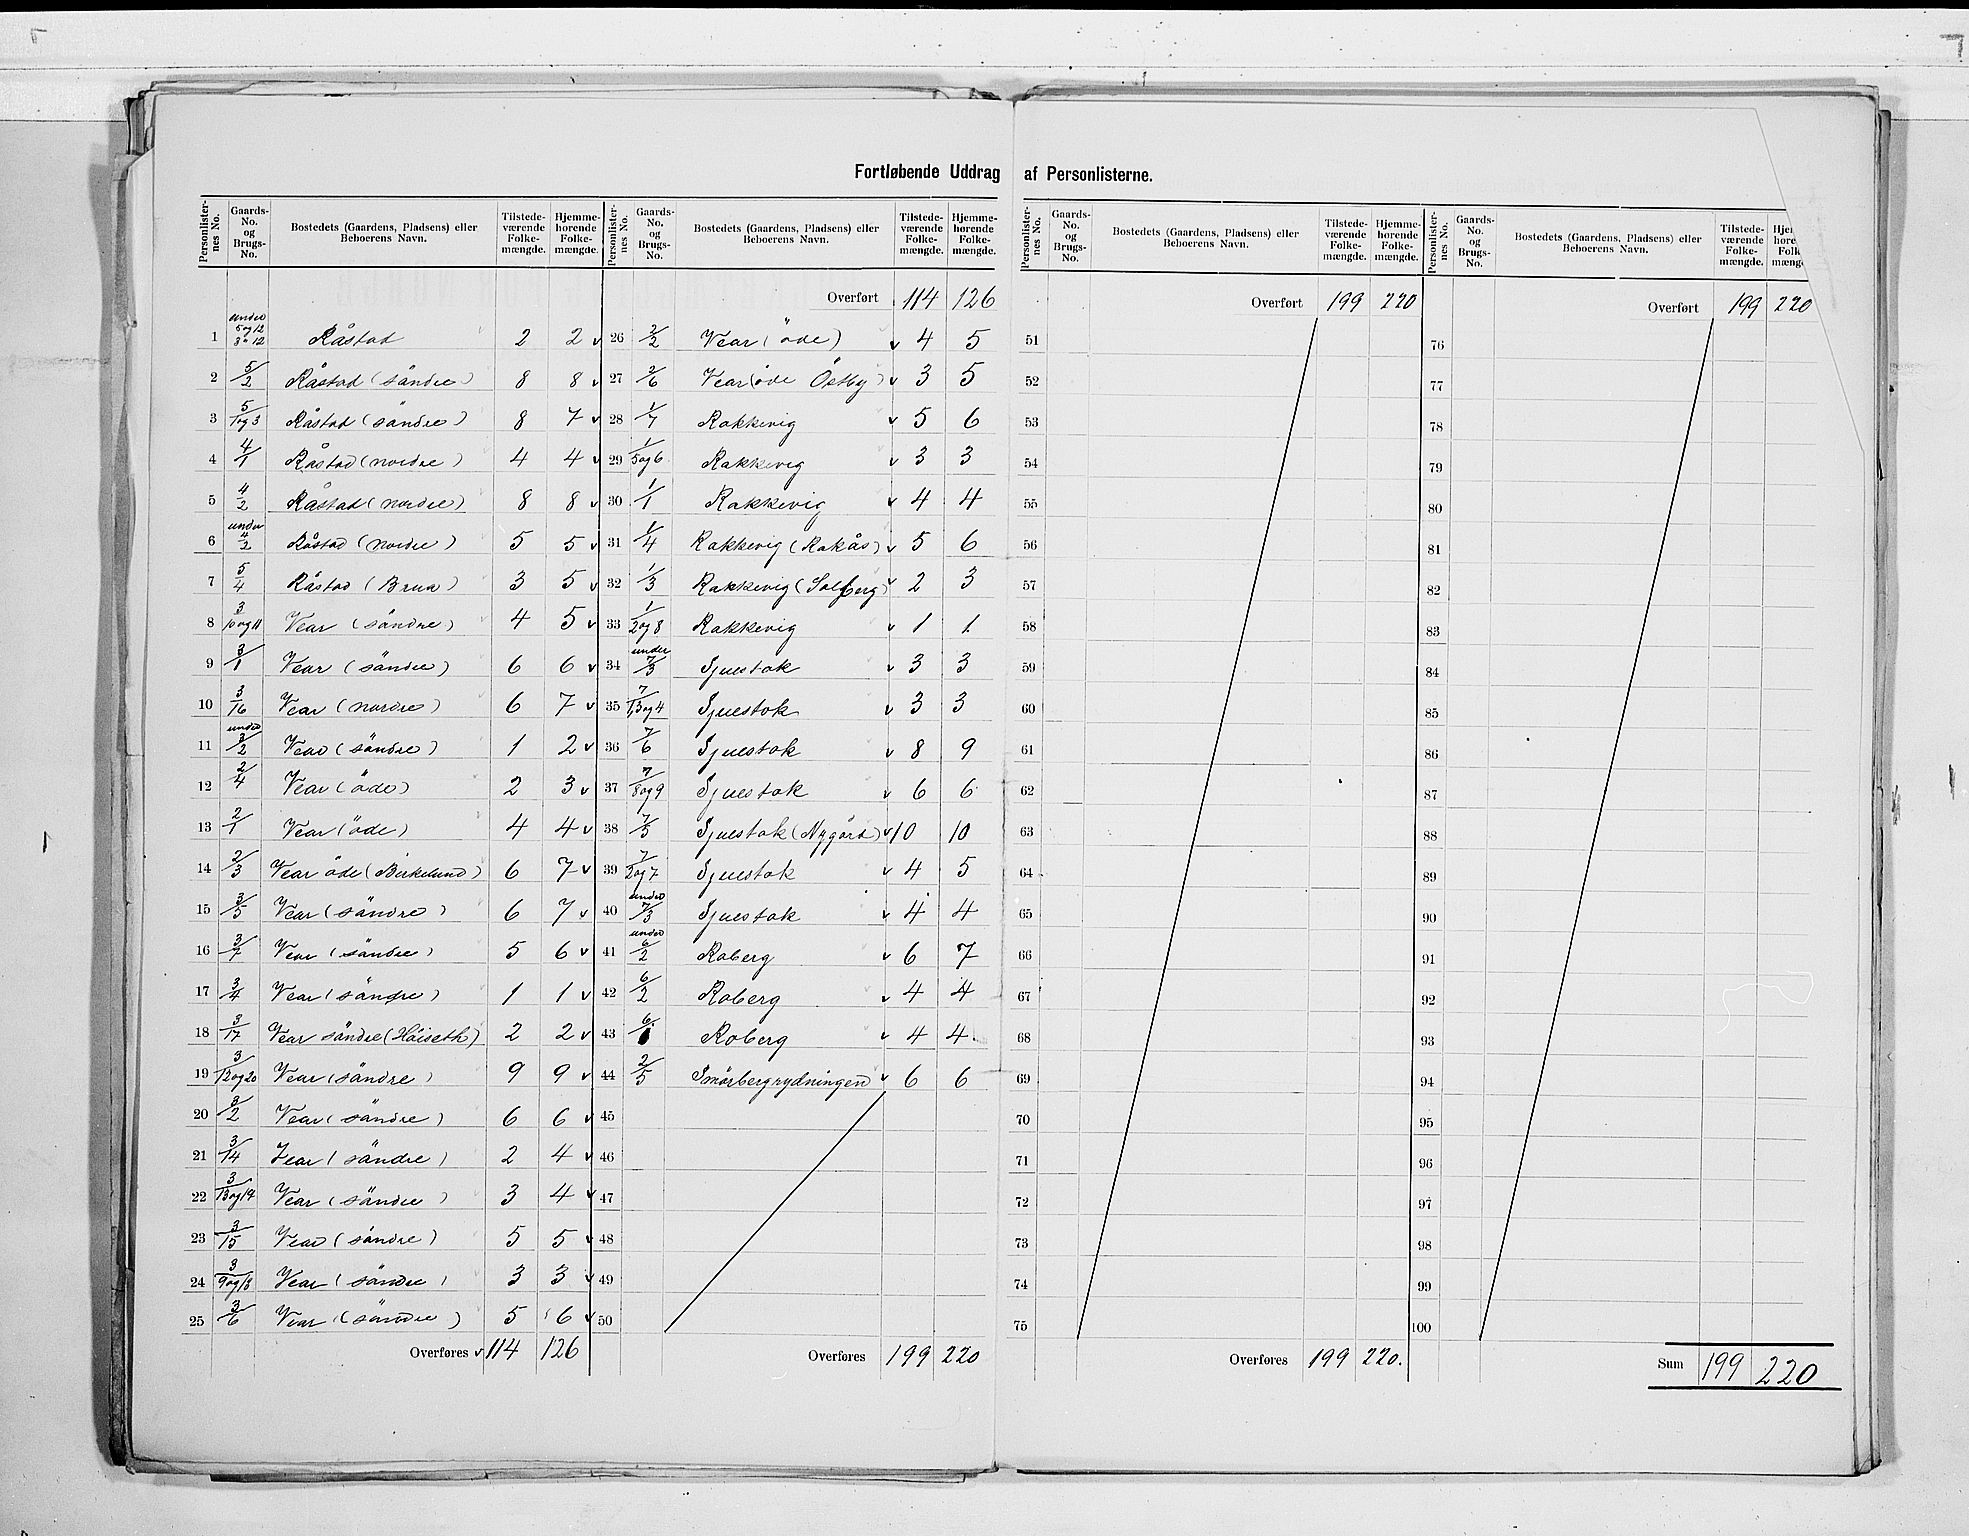 Fortløbende Uddrag af Personlisterne.
Personlisternes No. Gaards-No. og Brugs-No. Bostedets (Gaardens, Pladsens) eller Beboerens Navn. Tilstedeværende Folkemængde. Hjemmehørende Folkemængde.
1 under 5 og 12 3 " 12 Råstad 2 2 v
2 5/2 Råstad (söndre) 8 8 v
3 5/1 og 3 Råstad (söndre) 8 7 v
4 4/1 Råstad (nordre) 4 4 v
5 4/2 Råstad (nordre) 8 8 v
6 under 4/2 Råstad (nordre) 5 5 v
7 5/4 Råstad (Brua) 3 5 v
8 3/10 og 11 Vear (söndre) 4 5 v
9 3/1 Vear (söndre) 6 6 v
10 3/16 Vear (nordre) 6 7 v
11 under 3/2 Vear (söndre) 1 2 v
12 2/4 Vear (öde) 2 3 v
13 2/1 Vear (öde) 4 4 v
14 2/3 Vear öde (Birkelund) 6 7 v
15 3/5 Vear (söndre) 6 7 v
16 3/7 Vear (söndre) 5 6 v
17 3/4 Vear (söndre) 1 1 v
18 3/17 Vear söndre (Höiseth) 2 2 v
19 3/12 og 20 Vear (söndre) 9 9 v
20 3/2 Vear (söndre) 6 6 v
21 3/14 Vear (söndre) 2 4 v
22 3/13 og 19 Vear (söndre) 3 4 v
23 3/15 Vear (söndre) 5 5 v
24 3/9 og 18 Vear (söndre) 3 3 v
25 3/6 Vear (söndre) 5 6 v
Overføres v 114 126
Personlisternes No. Gaards-No. og Brugs-No. Bostedets (Gaardens, Pladsens) eller Beboerens Navn. Tilstedeværende Folkemængde. Hjemmehørende Folkemængde.
Overført 114 126
26 2/2 Vear (öde) v 4 5
27 2/6 Vear (öde Östby) v 3 5
28 1/7 Rakkevig v 5 6
29 1/5 og 6 Rakkevig v 3 3
30 1/1 Rakkevig v 4 4
31 1/4 Rakkevig (Rakås) v 5 6
32 1/3 Rakkevig (Solberg) v 2 3
33 1/2 og 8 Rakkevig v 1 1
34 under 7/3 Sjuestok v 3 3
35 7/1,3 og 4 Sjuestok v 3 3
36 7/6 Sjuestok v 8 9
37 7/8 og 9 Sjuestok v 6 6
38 7/5 Sjuestok (Nygård) v 10 10
39 7/2 og 7 Sjuestok v 4 5
40 under 7/3 Sjuestok v 4 4
41 under 6/2 Roberg v 6 7
42 6/2 Roberg v 4 4
43 6/1 Roberg v 4 4
44 2/5 Smörbergrydningen v 6 6
45
46
47
48
49
50
Overføres 199 220
Personlisternes No. Gaards-No. og Brugs-No. Bostedets (Gaardens, Pladsens) eller Beboerens Navn. Tilstedeværende Folkemængde. Hjemmehørende Folkemængde.
Overført 199 220
51
52
53
54
55
56
57
58
59
60
61
62
63
64
65
66
67
68
69
70
71
72
73
74
75
Overføres 199 220.
Personlisternes No. Gaards-No. og Brugs-No. Bostedets (Gaardens, Pladsens) eller Beboerens Navn. Tilstedeværende Folkemængde.
Overført 199 220
76
77
78
79
80
81
82
83
84
85
86
87
88
89
90
91
92
93
94
95
96
97
98
99
100
Sum 199 220